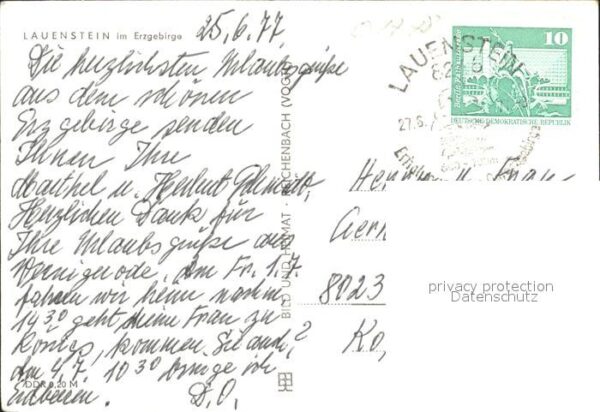 LAUENSTEIN im Erzgebirge
25.6.77
Die herzlichsten Urlaubsgrüße
aus dem schönen
Erzgebirge senden
Ihnen Ihre
u. Herbert Schmidt,
Herzlichen Dank für
Ihre Urlaubsgrüße aus
Wernigerode, am Fr. 1.7.
fahren wir heim nachm.
14³⁰ geht meine Frau zu
Königs, kommen Sie auch?
am 4.7. 10³⁰ bringe ich
Erdbeeren. D.O.
DDR 0,20 M
BILD UND HEIMAT · REICHENBACH (VOGTL)
LAUENSTEIN
27.6.
10
DEUTSCHE DEMOKRATISCHE REPUBLIK
Herrn u. Frau
8023
privacy protection
Datenschutz